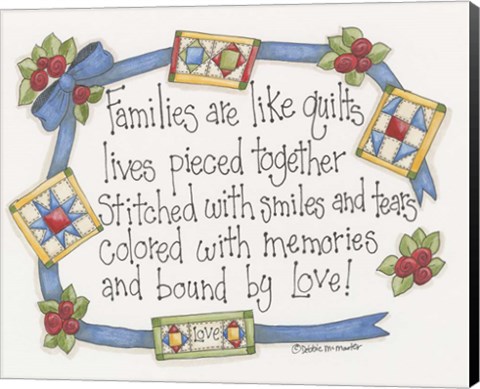 Families are like quilts
lives pieced together
Stitched with smiles and tears
colored with memories
and bound by Love!
Love
©Debbie McMaster